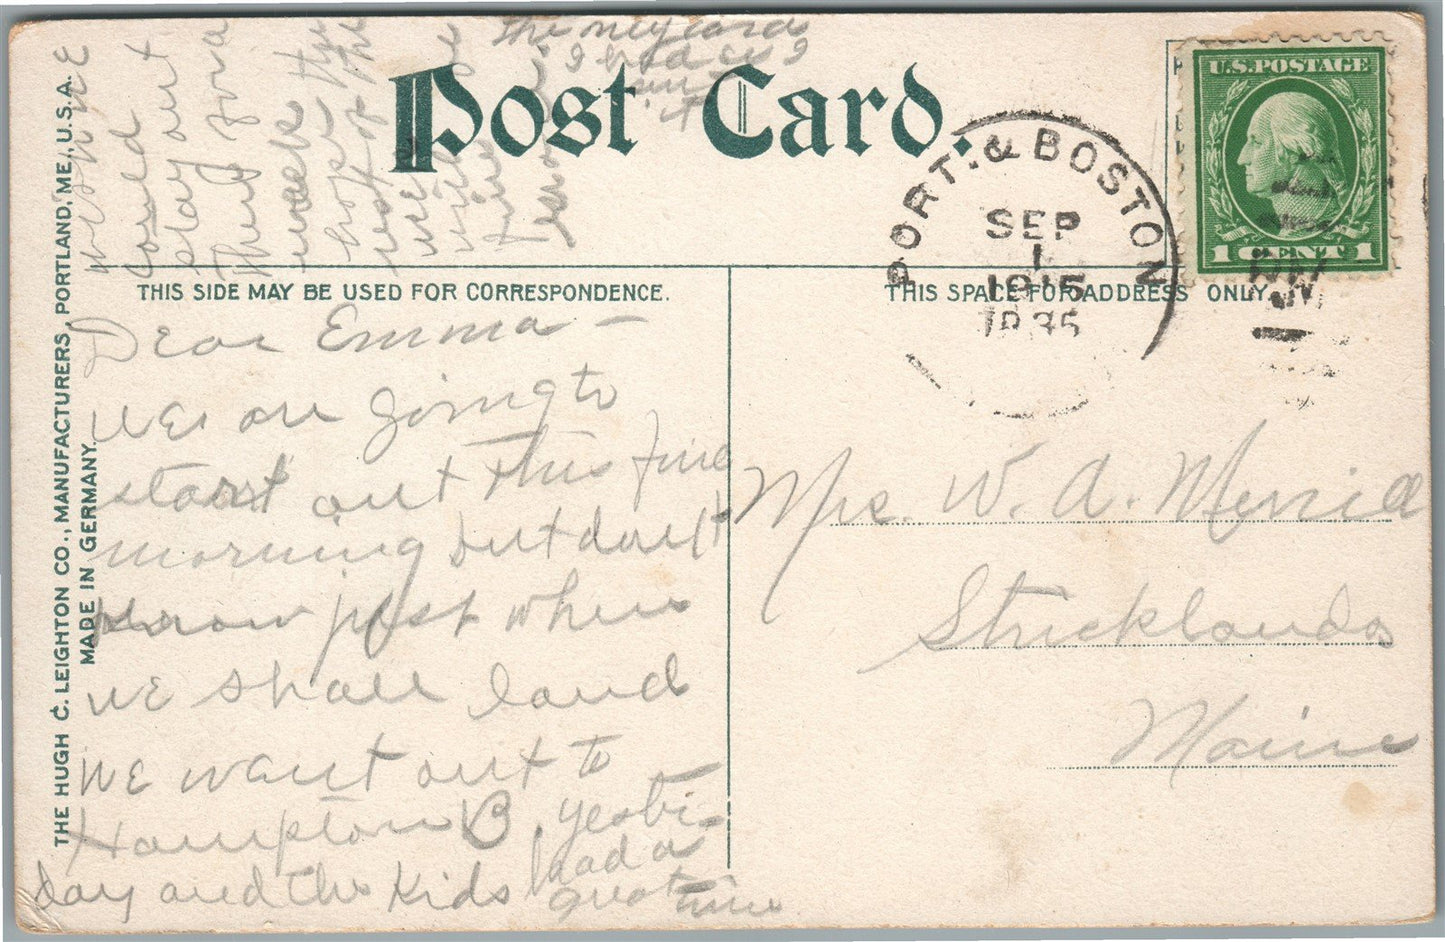 Post Card.
THIS SIDE MAY BE USED FOR CORRESPONDENCE.
THIS SPACE FOR ADDRESS ONLY
THE HUGH C. LEIGHTON CO., MANUFACTURERS, PORTLAND, ME., U.S.A.
MADE IN GERMANY.
U.S. POSTAGE
1 CENT 1
PORT. & BOSTON
SEP
1
1915
Dear Emma —
We are going to
start out this fine
morning but don't
know just where
we shall land
We want out to
Hampton B. yesti-
day and the kids had a
great time
we
could
stay out
here for a
week
hope the
rest of the
week
will be
fine
the
I had
it
Mrs. W. A. Merrill
Stricklands
Maine